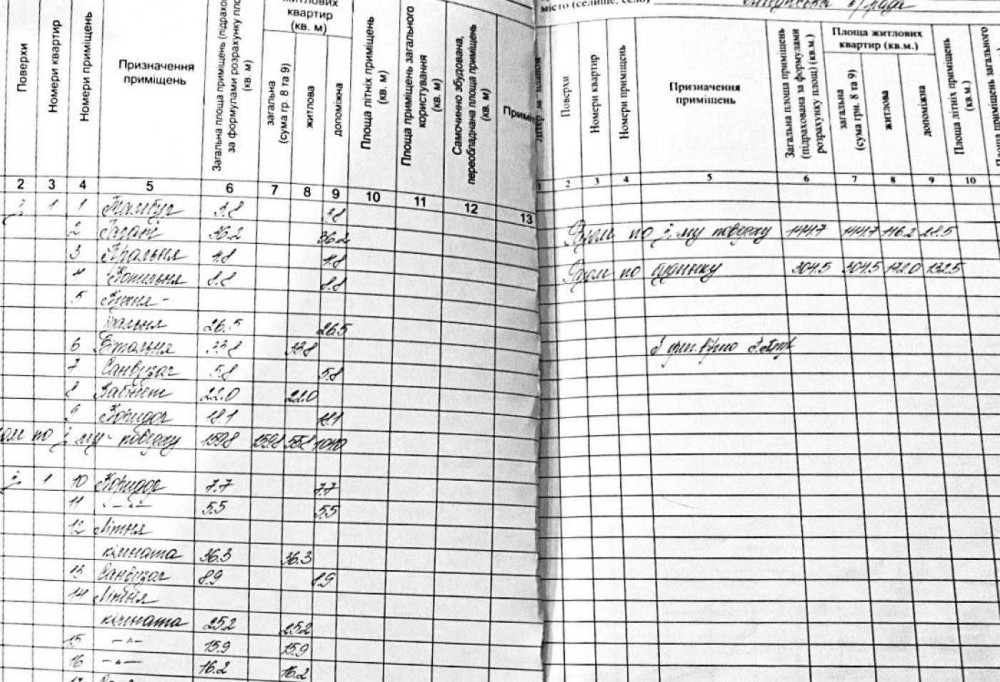 Поверхи
Номери квартир
Номери приміщень
Призначення приміщень
Загальна площа приміщень (підрахов
за формулами розрахунку пло
(кв. м)
житлових
квартир
(кв. м)
загальна
(сума гр. 8 та 9)
житлова
допоміжна
Площа літніх приміщень
(кв. м)
Площа приміщень загального
користування
(кв. м)
Самочинно збудована,
переобладнана площа приміщень
(кв. м)
Примі
2 3 4 5 6 7 8 9 10 11 12 13
1 1 Тамбур 3.8 3.8
2 36.2 36.2
3 Пральня 4.8 4.8
4 Котельня 8.8 8.8
5 Кухня-
їдальня 26.5 26.5
6 33.8 33.8
7 Санвузол 5.8 5.8
8 Кабінет 22.0 22.0
9 Коридор 18.1 18.1
по му поверху 159.8 159.8 55.8 104.0
1 10 Коридор 7.7 7.7
11 -"- 5.5 5.5
12 Житлова
кімната 36.3 36.3
13 Санвузол 8.9 8.9
14 Житлова
кімната 25.2 25.2
15 -"- 15.9 15.9
16 -"- 16.2 16.2
місто (селище, село) рада
літер за планом
Поверхи
Номери квартир
Номери приміщень
Призначення
приміщень
Загальна площа приміщень
(підрахована за формулами
розрахунку площ) (кв.м.)
Площа житлових
квартир (кв.м.)
загальна
(сума грн. 8 та 9)
житлова
допоміжна
Площа літніх приміщень
(кв.м.)
Площа приміщень загального
1 2 3 4 5 6 7 8 9 10
Разом по 2-му поверху 144.7 144.7 116.2 28.5
Разом по будинку 304.5 304.5 172.0 132.5